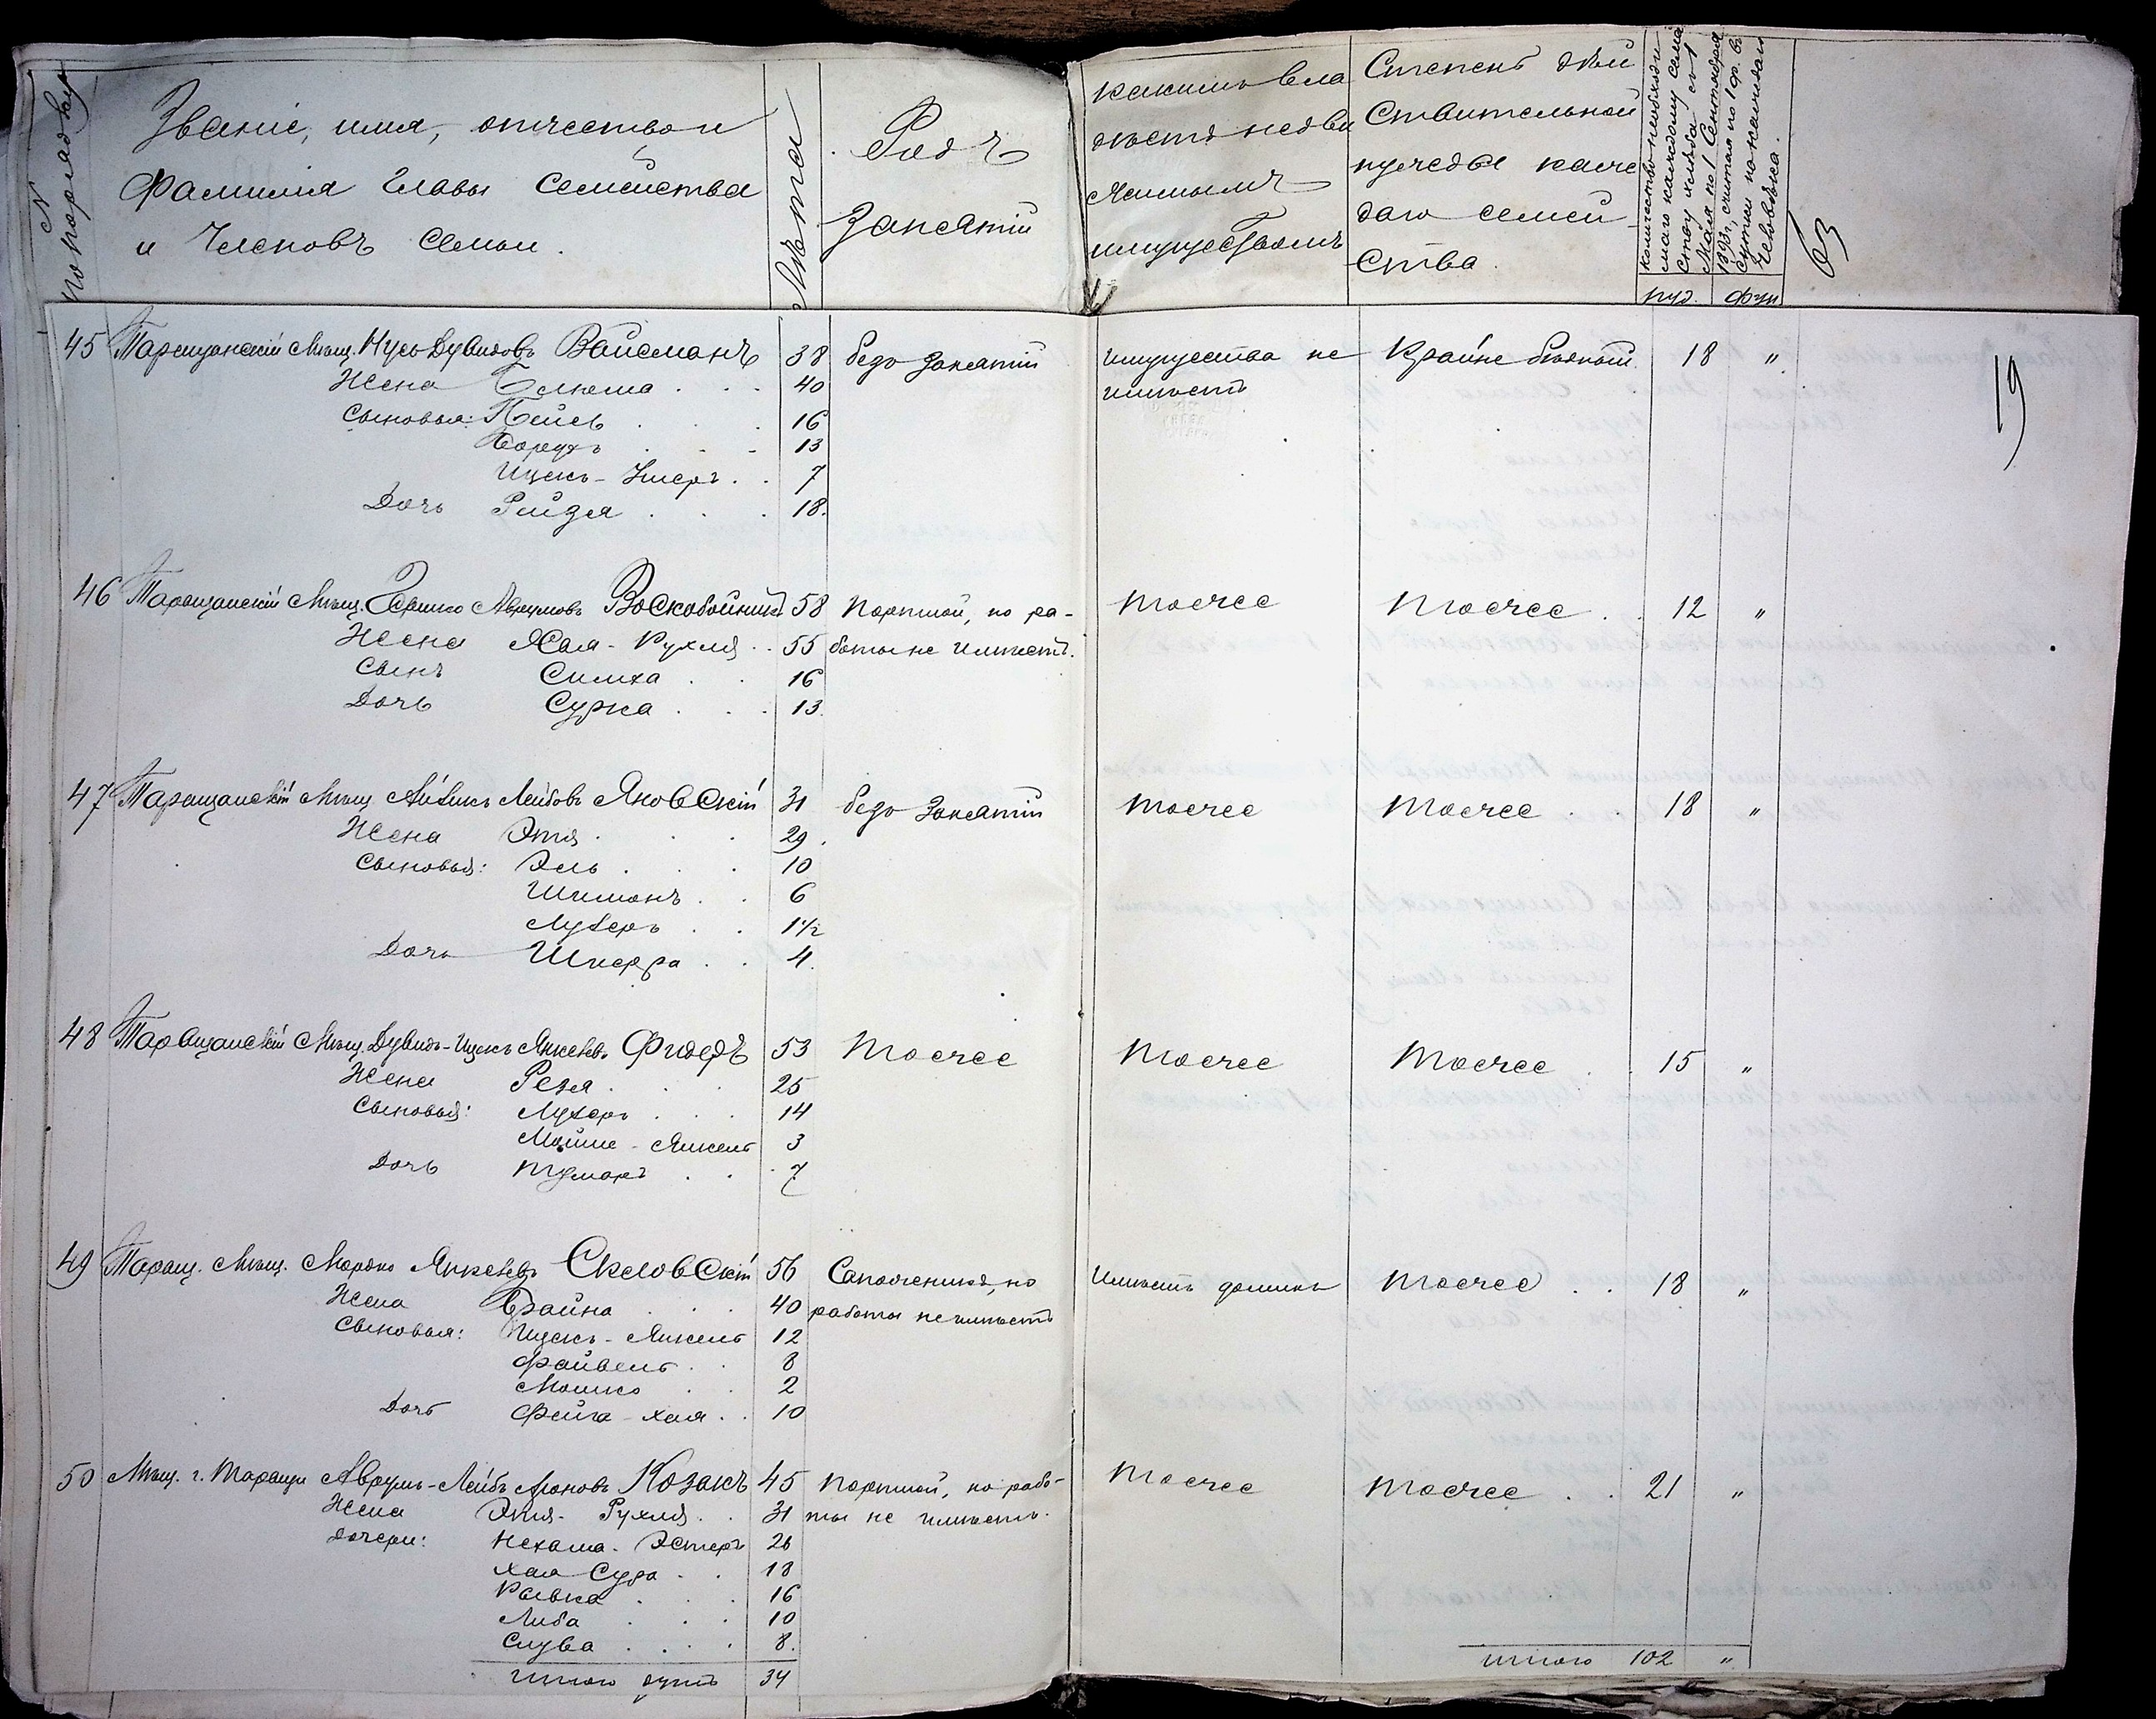 № по порядку
Званіе, имя, отчество и
Фамилія главы семейства
и Членовъ семьи.
Лѣта
Родъ
Занятій
какимъ вла
дѣетъ недви
жимымъ
имуществомъ
Степень дѣй
ствительной
нужды каж
даго семей
ства.
количество необходи
маго каждому семей
ству хлѣба съ 1
Мая по 1 Сентября
1893 г, считая по 1 ф. въ
сутки на каждаго
человѣка.
пуд. фун
63
19
45 Таращанскій Мѣщ. Нусь Дувидовъ Вайсманъ 38 безъ занятій имущества не Крайне бѣдный 18 "
Жена 40 имѣетъ
Сыновья: Пейсъ 16
Борухъ 13
Ицекъ- 7
Дочь Рейзя 18.
46 Таращанскій Мѣщ. Гершко Аврумовъ Воскобойникъ 58 Портной, но ра- тоже тоже 12 "
Жена Хая-Рухля 55 боты не имѣетъ.
Сынъ Симха 16
Дочь Сурка 13.
47 Таращанскій Мѣщ. Айзикъ Лейбовъ Яновскій 31 безъ занятій тоже тоже 18 "
Жена Этя 29.
Сыновья: Эль 10
Шимонъ 6
Лузеръ 1 1/2
Дочь Шифра 4.
48 Таращанскій Мѣщ. Дувидъ-Ицекъ Янкелевъ 53 тоже тоже тоже 15 "
Жена Рейзя 25
Сыновья: Лузеръ 14
Мойше-Янкель 3
Дочь 7
49 Таращ. Мѣщ. Мордко Янкелевъ 56 Сапожникъ, но Имѣетъ домикъ тоже 18 "
Жена Брайна 40 работы не имѣетъ
Сыновья: Ицекъ-Янкель 12
Файвель 8
Мошко 2
Дочь Фейга-Хая 10
50 Мѣщ. г. Таращи Аврумъ-Лейбъ Ароновъ Козакъ 45 Портной, но рабо- тоже тоже 21 "
Жена Этя-Рухля 31 ты не имѣетъ.
Дочери: Нехама-Эстеръ 26
Хая Сура 18
Рывка 16
Либа 10
Слува 8.
Итого душъ 34
итого 102 "